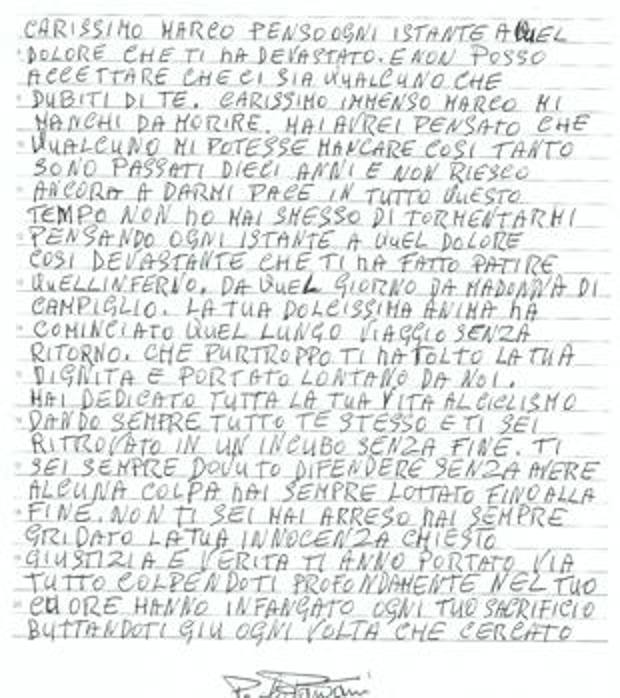 CARISSIMO MARCO PENSO OGNI ISTANTE A QUEL
DOLORE CHE TI HA DEVASTATO. E NON POSSO
ACCETTARE CHE CI SIA QUALCUNO CHE
DUBITI DI TE. CARISSIMO IMMENSO MARCO MI
MANCHI DA MORIRE. MAI AVREI PENSATO CHE
QUALCUNO MI POTESSE MANCARE COSI TANTO
SONO PASSATI DIECI ANNI E NON RIESCO
ANCORA A DARMI PACE IN TUTTO QUESTO
TEMPO NON HO MAI SMESSO DI TORMENTARMI
PENSANDO OGNI ISTANTE A QUEL DOLORE
COSI DEVASTANTE CHE TI HA FATTO PATIRE
QUELLINFERNO. DA QUEL GIORNO DA MADONNA DI
CAMPIGLIO. LA TUA DOLCISSIMA ANIMA HA
COMINCIATO QUEL LUNGO VIAGGIO SENZA
RITORNO. CHE PURTROPPO TI HA TOLTO LA TUA
DIGNITA E PORTATO LONTANO DA NOI.
HAI DEDICATO TUTTA LA TUA VITA AL CICLISMO
DANDO SEMPRE TUTTO TE STESSO E TI SEI
RITROVATO IN UN INCUBO SENZA FINE. TI
SEI SEMPRE DOVUTO DIFENDERE SENZA AVERE
ALCUNA COLPA HAI SEMPRE LOTTATO FINO ALLA
FINE. NON TI SEI MAI ARRESO HAI SEMPRE
GRIDATO LA TUA INNOCENZA CHIESTO
GIUSTIZIA E VERITA TI ANNO PORTATO VIA
TUTTO COLPENDOTI PROFONDAMENTE NEL TUO
CUORE HANNO INFANGATO OGNI TUO SACRIFICIO
BUTTANDOTI GIU OGNI VOLTA CHE CERCATO